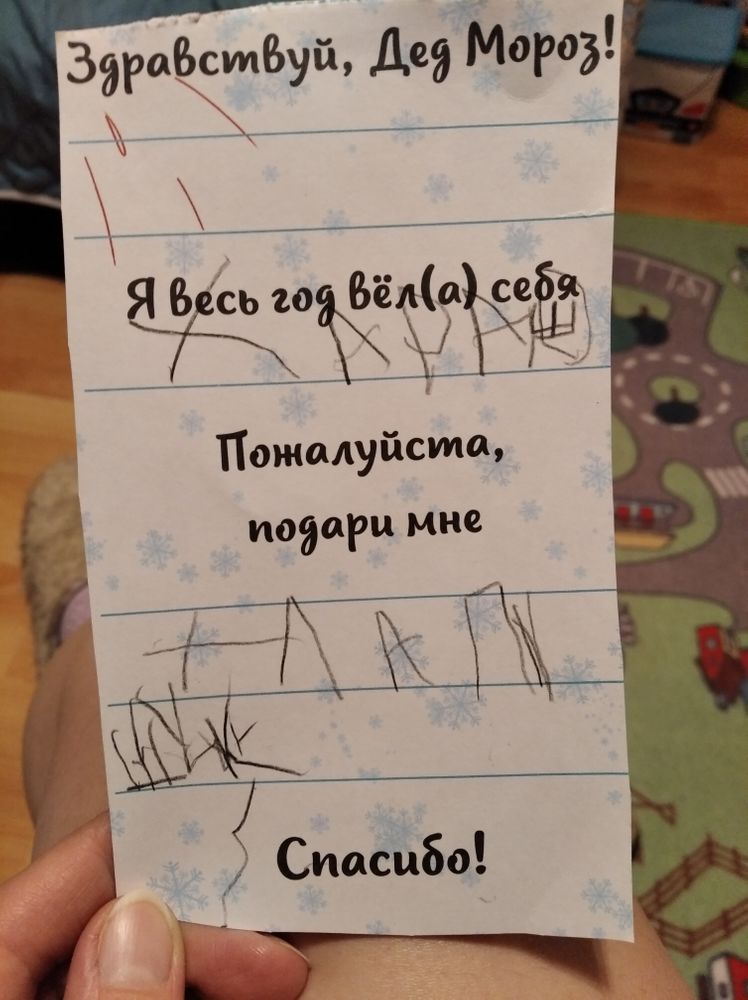 Здравствуй, Дед Мороз!
Я весь год вёл(а) себя
ХАРАШО
Пожалуйста,
подари мне
Спасибо!